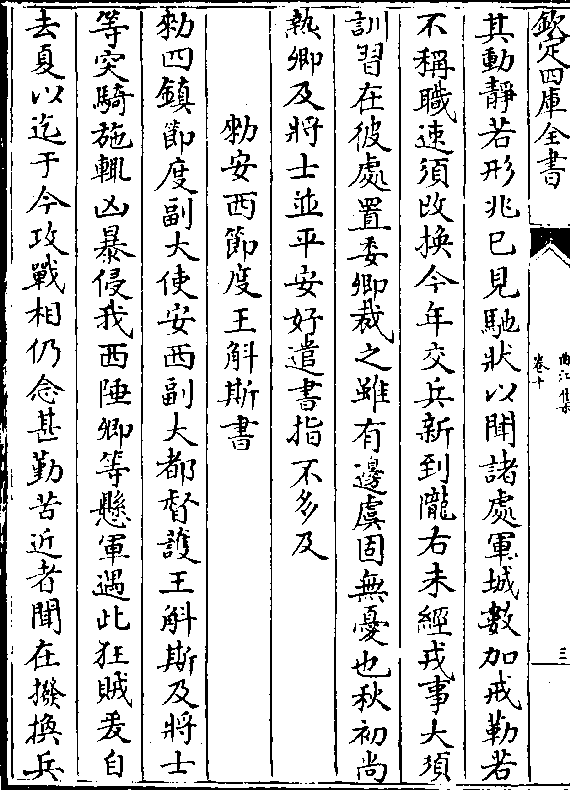 欽定四庫全書
曲江集
卷十
三
其動靜若形兆已見馳狀以聞諸處軍城數加戒勒若
不稱職速須改換今年交兵新到隴右未經戎事大須
訓習在彼處置委卿裁之雖有邊虞固無憂也秋初尚
熱卿及將士並平安好遣書指不多及
勑安西節度王斛斯書
勑四鎮節度副大使安西副大都督護王斛斯及將士
等突騎施輙凶暴侵我西陲卿等懸軍遇此狂賊爰自
去夏以迄于今攻戰相仍念甚勤苦近者聞在撥換兵